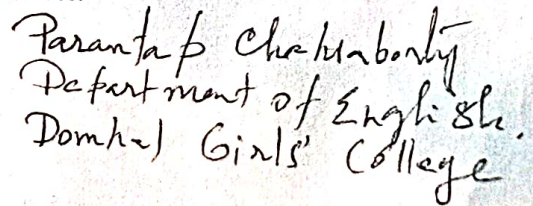 Parantap Chakraborty
Department of English.
Domkal Girls' College